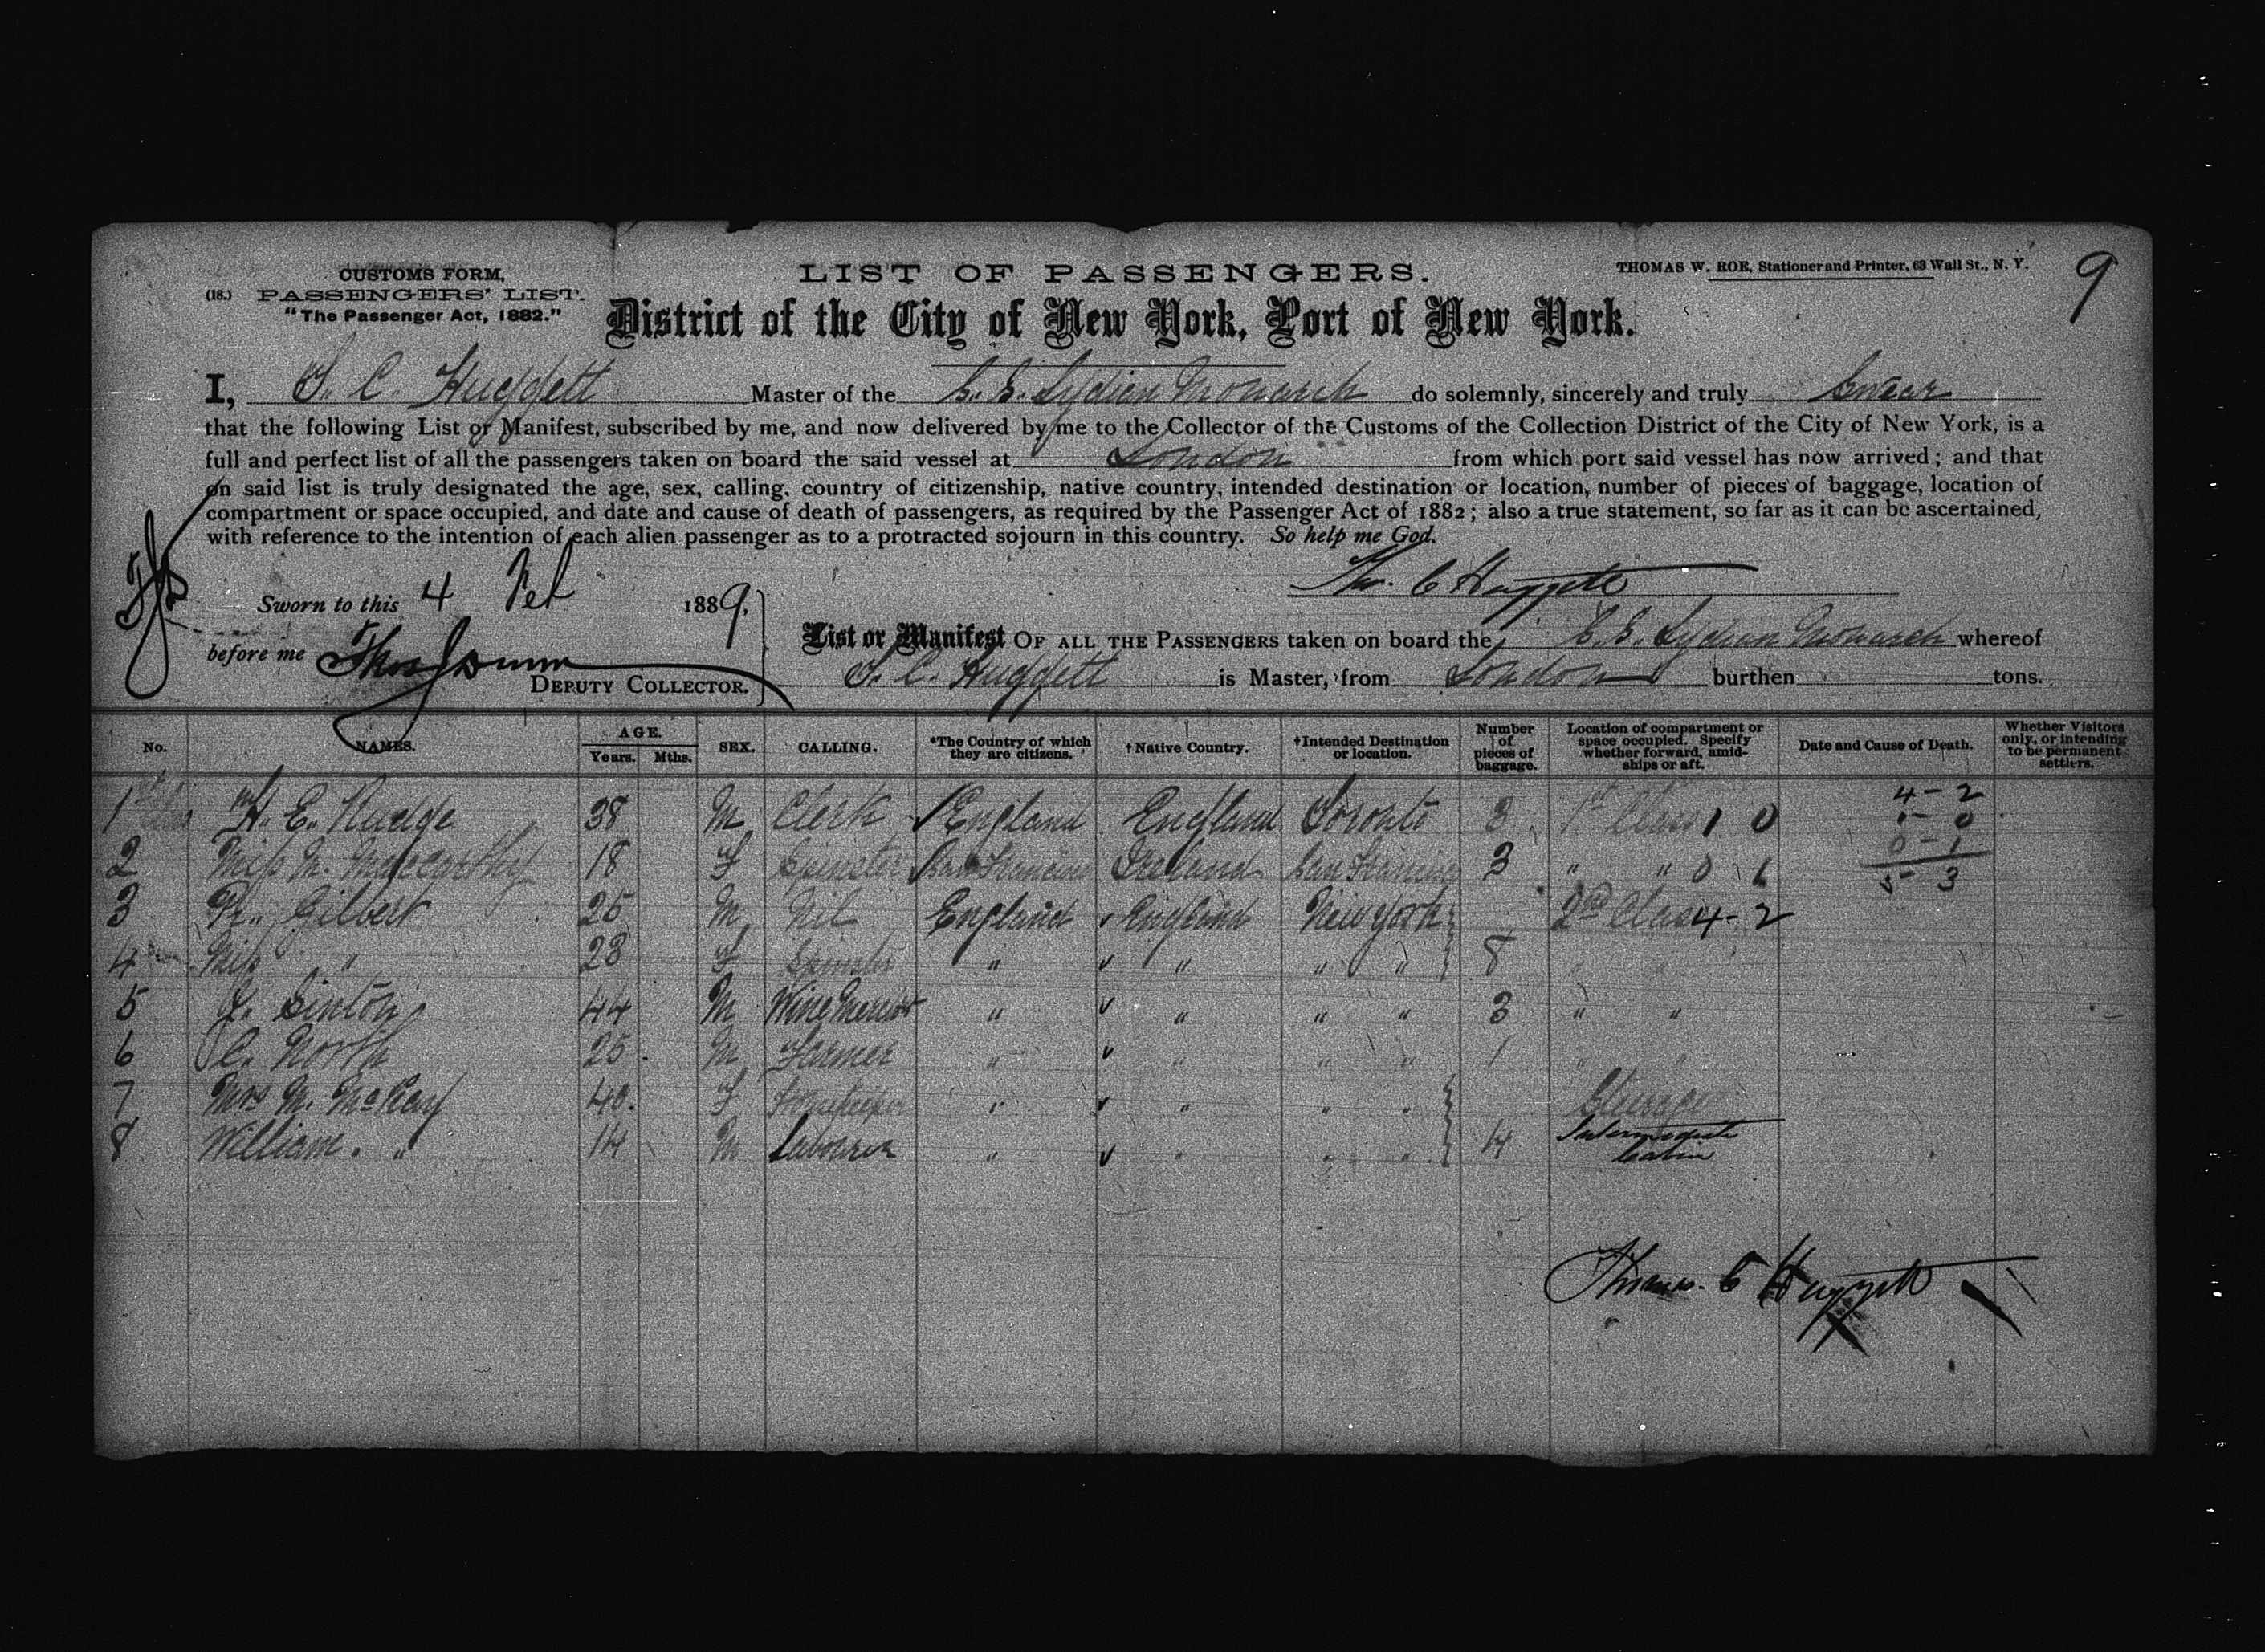 CUSTOMS FORM,
(18.) PASSENGERS' LIST.
"The Passenger Act, 1882."
LIST OF PASSENGERS.
THOMAS W. ROE, Stationer and Printer, 63 Wall St., N. Y.
9
District of the City of New York, Port of New York.
I, T. C. Huggett Master of the S. S. Lydian Monarch do solemnly, sincerely and truly Swear
that the following List or Manifest, subscribed by me, and now delivered by me to the Collector of the Customs of the Collection District of the City of New York, is a
full and perfect list of all the passengers taken on board the said vessel at London from which port said vessel has now arrived; and that
on said list is truly designated the age, sex, calling, country of citizenship, native country, intended destination or location, number of pieces of baggage, location of
compartment or space occupied, and date and cause of death of passengers, as required by the Passenger Act of 1882; also a true statement, so far as it can be ascertained,
with reference to the intention of each alien passenger as to a protracted sojourn in this country. So help me God.
Thos. C Huggett
Sworn to this 4 Feb 1889.
before me Thos
DEPUTY COLLECTOR.
List or Manifest OF ALL THE PASSENGERS taken on board the S. S. Lydian Monarch whereof
T. C. Huggett is Master, from London burthen tons.
No. NAMES. AGE. Years. Mths. SEX. CALLING. *The Country of which they are citizens. †Native Country. †Intended Destination or location. Number of pieces of baggage. Location of compartment or space occupied. Specify whether forward, amidships or aft. Date and Cause of Death. Whether Visitors only, or intending to be permanent settlers.
1 H. E. Rudge 38 M Clerk England England Toronto 3 1st Class 1 0
4 - 2
1 - 0
0 - 1
5 3
2 Miss M. Maccarthy 18 F Spinster San Francisco Ireland San Francisco 3 " " 0 1
3 Gilbert 25 M Nil England England New York 2nd Class 4 - 2
4 Miss " 23 F Spinster " " " " 8 " "
5 J. Sinton 44 M Wine Merch " " " " 3 " "
6 C. North 25 M Farmer " " " " 1 " "
7 Mrs M. McKay 40 F " " " " Steerage
8 William " 14 M Labourer " " " " 4 Intermediate
Cabin
Thomas. C Huggett